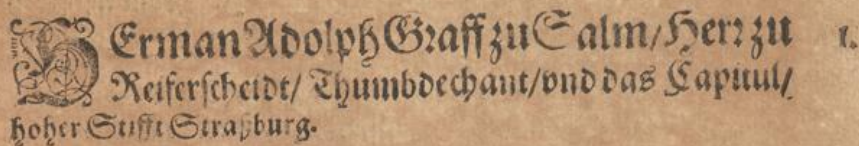 HErman Adolph Graff zu Salm/ Herr zu I.
Reiferscheidt/ Thumbdechant/ vnd das Capitul/
hoher Stifft Straßburg.